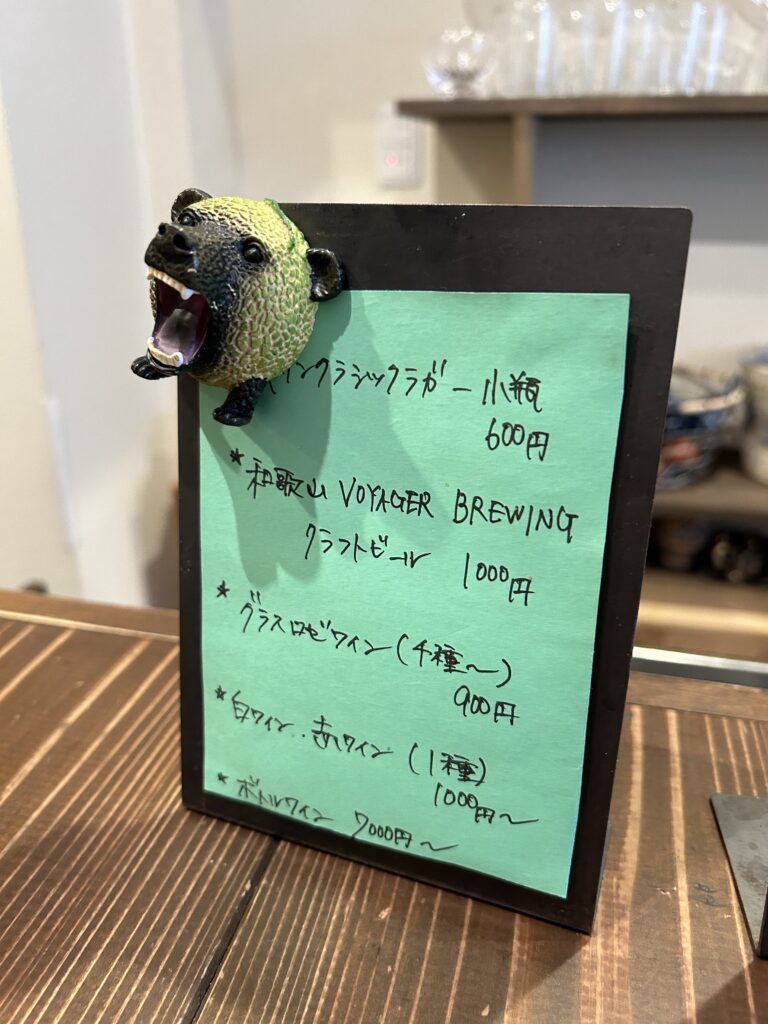 インクラシックラガー 小瓶
600円
* 和歌山 VOYAGER BREWING
クラフトビール 1000円
* グラスロゼワイン (4種〜)
900円
* 白ワイン・赤ワイン (1種)
1000円〜
* ボトルワイン 7000円〜